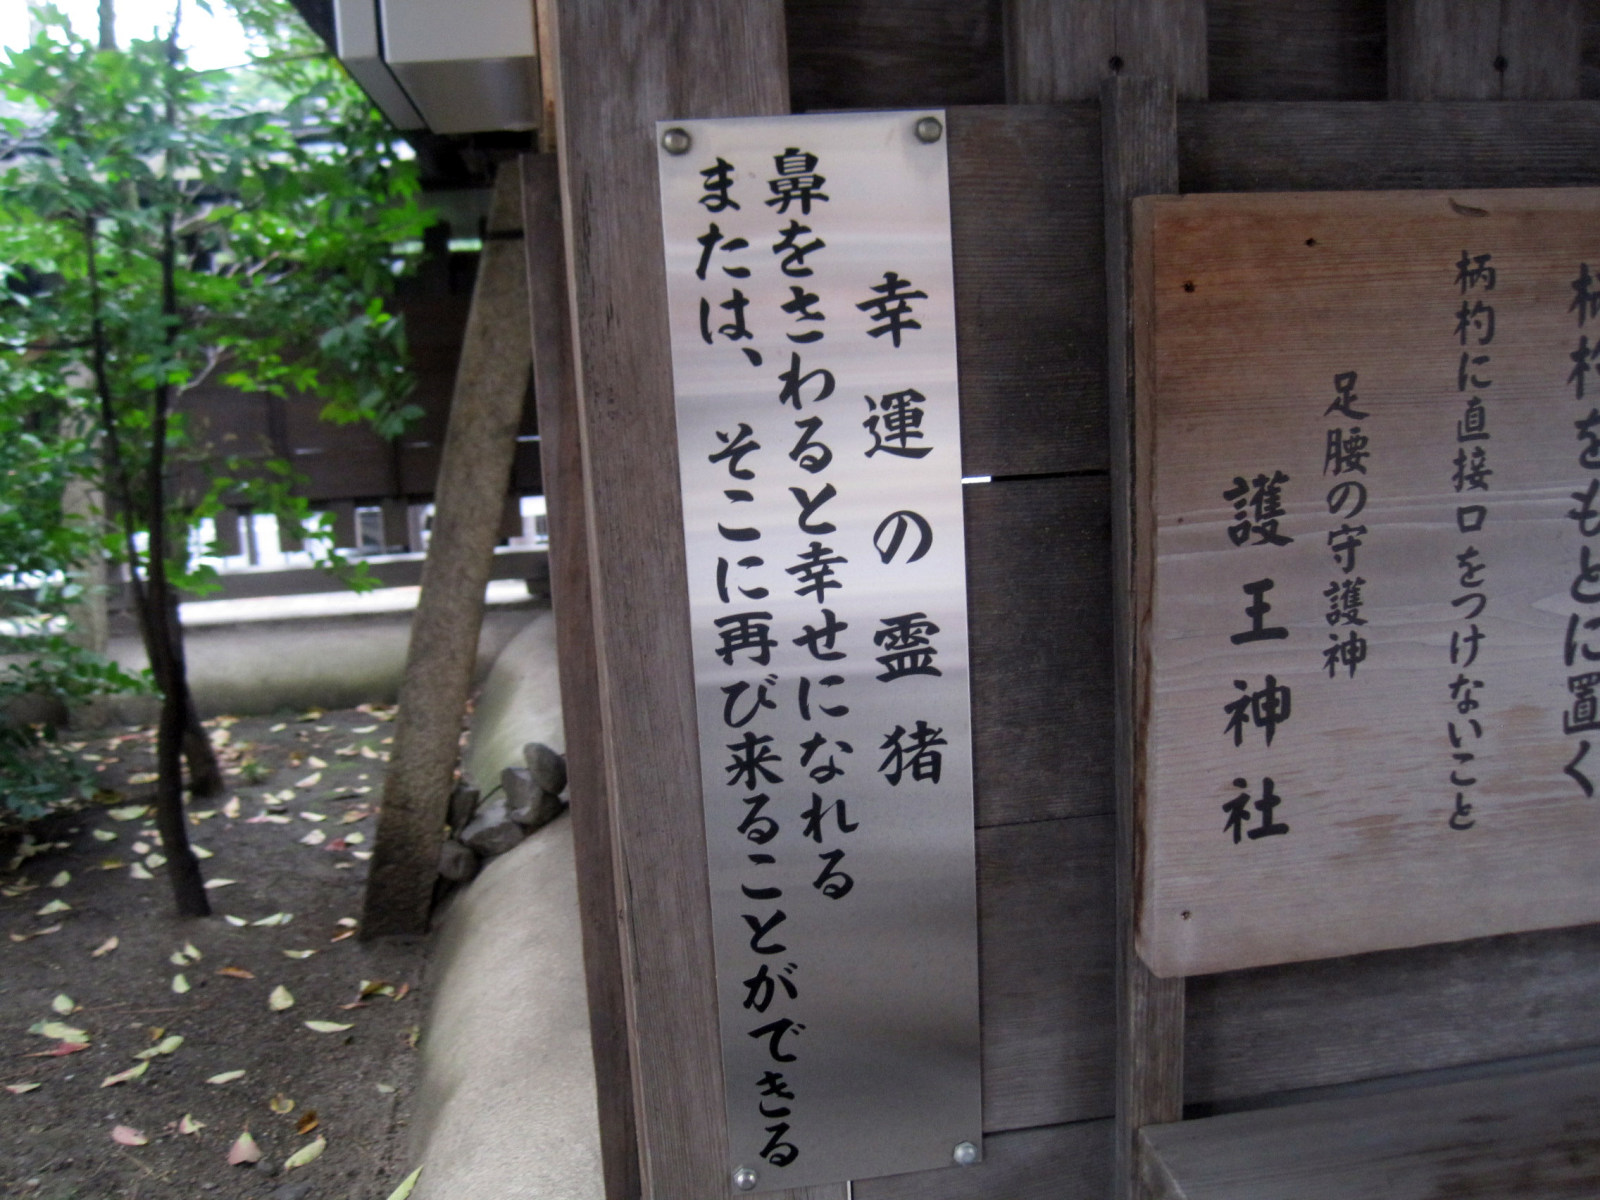 幸運の霊猪
鼻をさわると幸せになれる
または、そこに再び来ることができる
柄杓をもとに置く
柄杓に直接口をつけないこと
足腰の守護神
護王神社